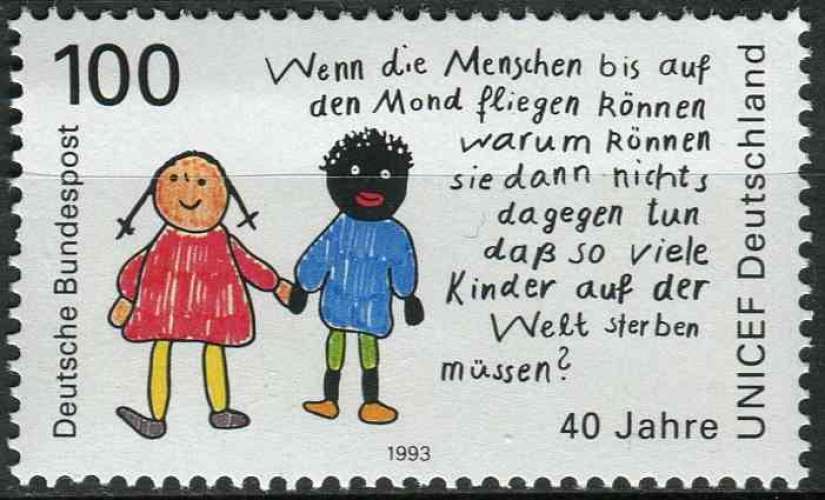 100
Deutsche Bundespost
Wenn die Menschen bis auf
den Mond fliegen können
warum können
sie dann nichts
dagegen tun
daß so viele
Kinder auf der
Welt sterben
müssen?
40 Jahre
UNICEF Deutschland
1993